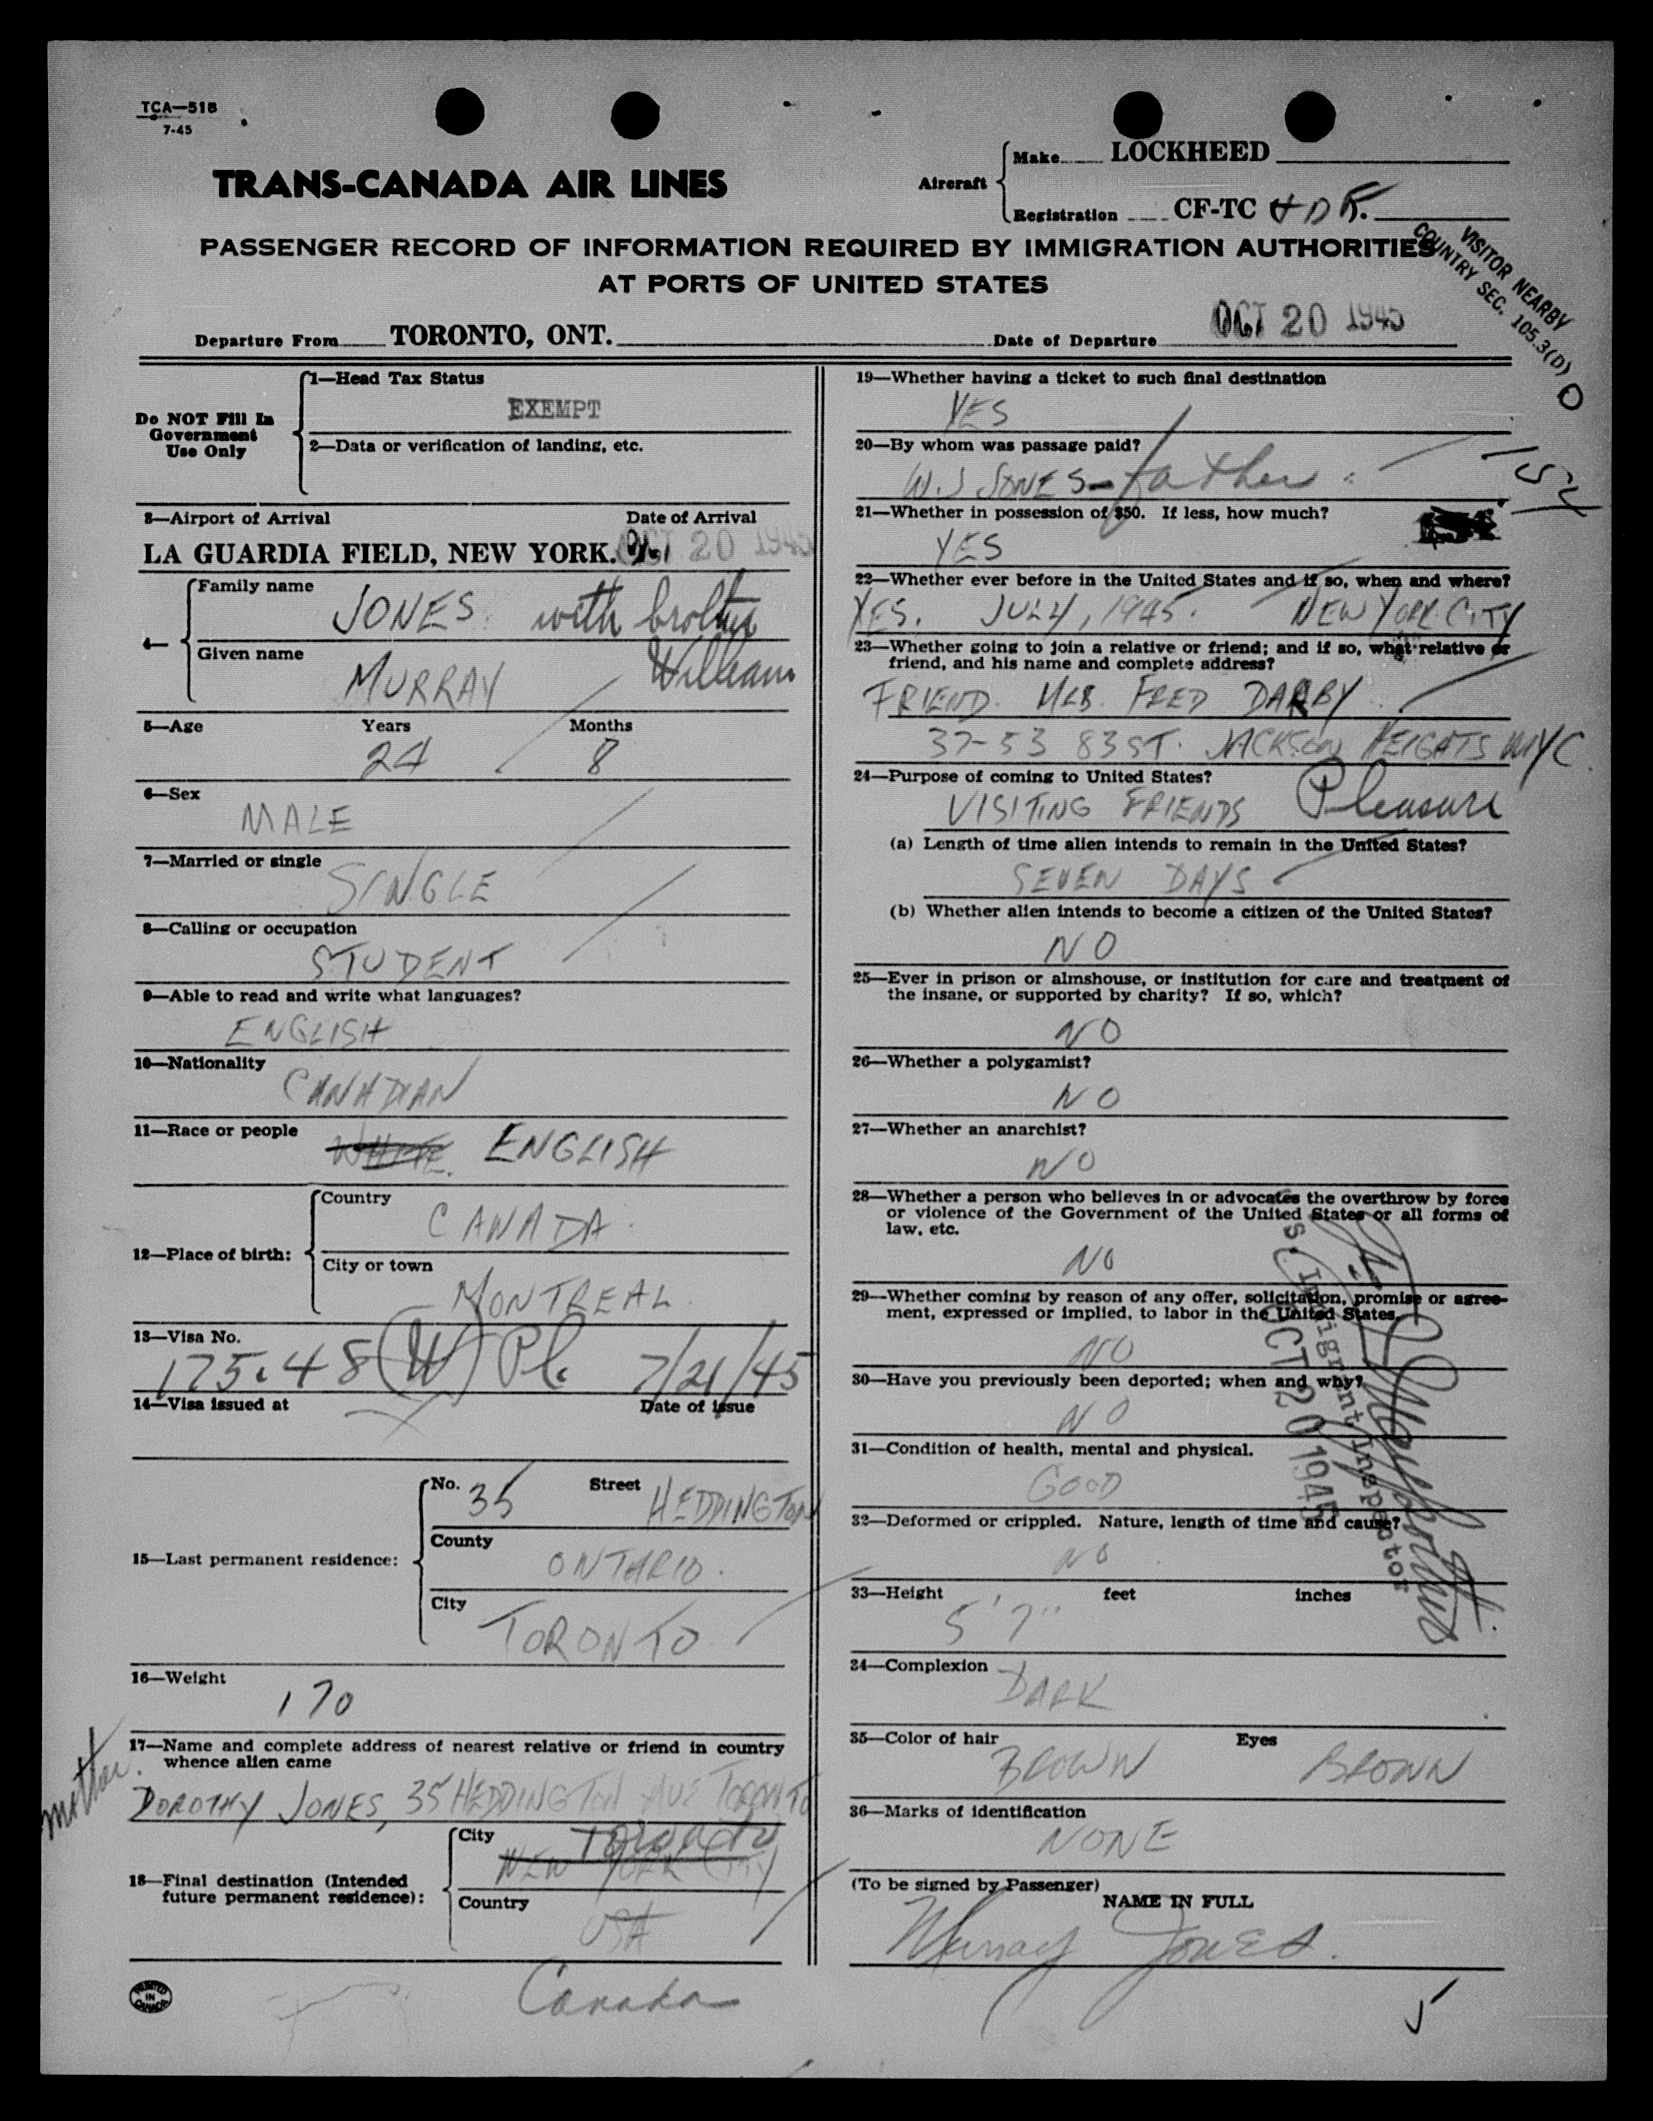 TCA—518
7-45
TRANS-CANADA AIR LINES
Aircraft
Make LOCKHEED
Registration CF-TC
PASSENGER RECORD OF INFORMATION REQUIRED BY IMMIGRATION AUTHORITIES
AT PORTS OF UNITED STATES
VISITOR NEARBY
COUNTRY SEC. 105.3(D)
Departure From TORONTO, ONT. Date of Departure OCT 20 1945
Do NOT Fill In
Government
Use Only
1—Head Tax Status
EXEMPT
2—Data or verification of landing, etc.
3—Airport of Arrival Date of Arrival
LA GUARDIA FIELD, NEW YORK. OCT 20 1945
4—
Family name
JONES. with brother
Given name
MURRAY William
5—Age Years Months
24 8
6—Sex
MALE
7—Married or single
SINGLE
8—Calling or occupation
STUDENT
9—Able to read and write what languages?
ENGLISH
10—Nationality
CANADIAN
11—Race or people
WHITE. ENGLISH
12—Place of birth:
Country
CANADA
City or town
MONTREAL
13—Visa No.
175.48 (W) Pl. 7/21/45
14—Visa issued at Date of issue
15—Last permanent residence:
No. 35 Street HEDDINGTON
County
ONTARIO.
City
TORONTO
16—Weight
170
17—Name and complete address of nearest relative or friend in country
whence alien came
mother.
DOROTHY JONES, 35 HEDDINGTON AVE TORONTO
18—Final destination (Intended
future permanent residence):
City
Toronto
NEW YORK CITY
Country
USA
Canada
PRINTED
IN
CANADA
19—Whether having a ticket to such final destination
YES
20—By whom was passage paid?
W.J JONES - father
21—Whether in possession of $50. If less, how much?
YES
22—Whether ever before in the United States and if so, when and where?
YES. JULY, 1945. NEW YORK CITY
23—Whether going to join a relative or friend; and if so, what relative or
friend, and his name and complete address?
FRIEND. MRS. FRED DARBY
37-53 83 ST. JACKSON HEIGHTS NYC
24—Purpose of coming to United States?
VISITING FRIENDS Pleasure
(a) Length of time alien intends to remain in the United States?
SEVEN DAYS
(b) Whether alien intends to become a citizen of the United States?
NO
25—Ever in prison or almshouse, or institution for care and treatment of
the insane, or supported by charity? If so, which?
NO
26—Whether a polygamist?
NO
27—Whether an anarchist?
NO
28—Whether a person who believes in or advocates the overthrow by force
or violence of the Government of the United States or all forms of
law, etc.
NO
29—Whether coming by reason of any offer, solicitation, promise or agree-
ment, expressed or implied, to labor in the United States.
NO
30—Have you previously been deported; when and why?
NO
Immigrant Inspector
OCT 20 1945
31—Condition of health, mental and physical.
GOOD
32—Deformed or crippled. Nature, length of time and cause?
NO
33—Height feet inches
5' 7"
34—Complexion
DARK
35—Color of hair Eyes
BROWN BROWN
36—Marks of identification
NONE
(To be signed by Passenger)
NAME IN FULL
Murray Jones.
5